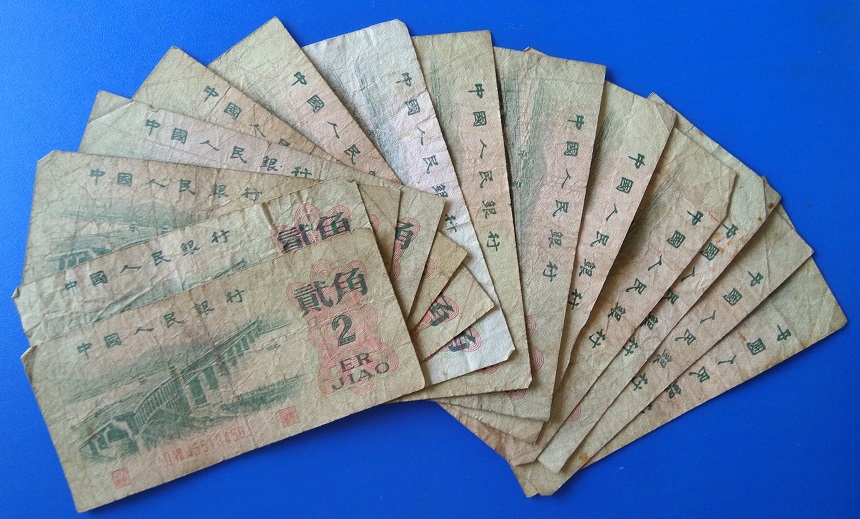 中國人民銀行
貳角
2
ER
JIAO
中國人民銀行
貳角
中國人民銀行
角
中國人民銀
中國人
中國人民
中國人民銀行
中國人民銀行
中國人民銀行
中國人民銀行
中國人民銀行
中
中國人民
中國人民